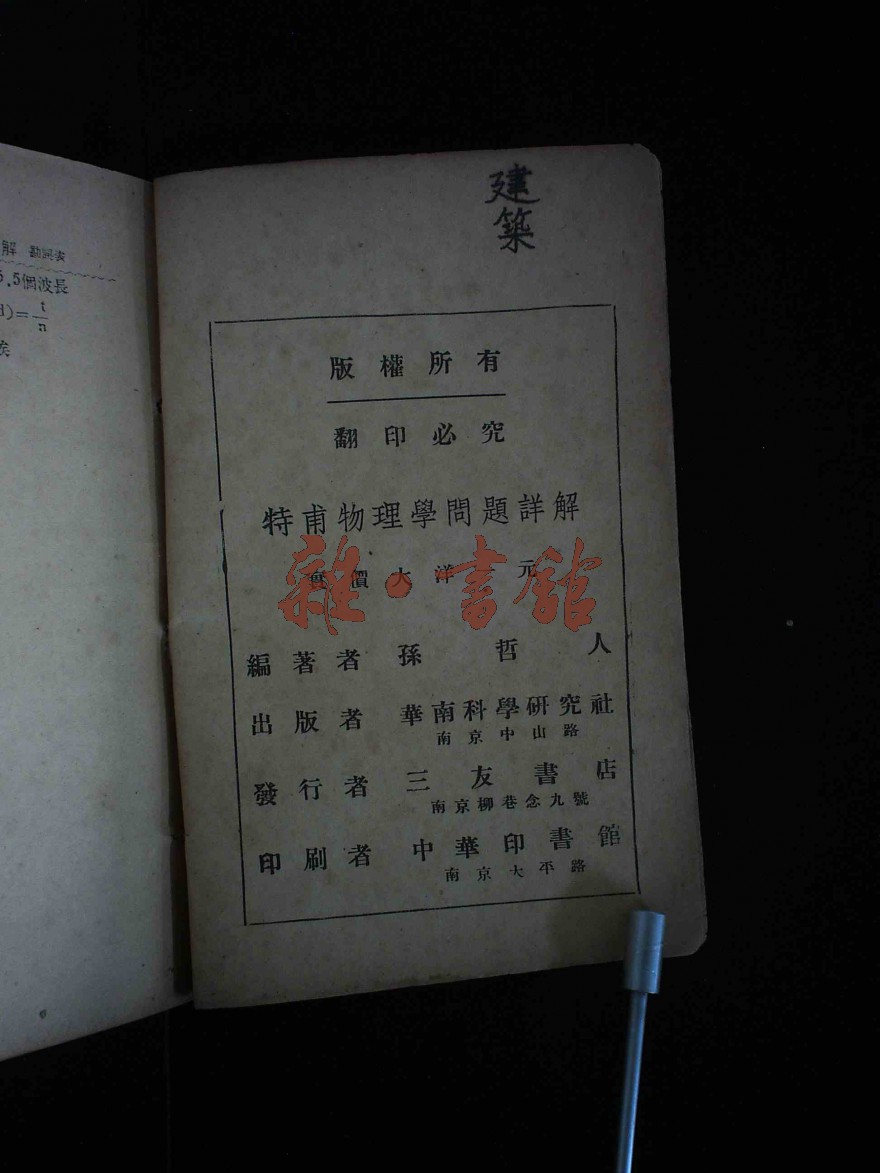 解 勘誤表
5.5個波長
)=t/n
建築
版權所有
翻印必究
特甫物理學問題詳解
實價大洋 元
雜·書館
編著者 孫哲人
出版者 華南科學研究社
南京中山路
發行者 三友書店
南京柳巷念九號
印刷者 中華印書館
南京太平路